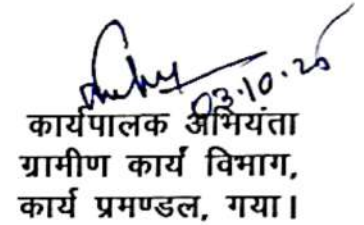 03.10.25
कार्यपालक अभियंता
ग्रामीण कार्य विभाग,
कार्य प्रमण्डल, गया।